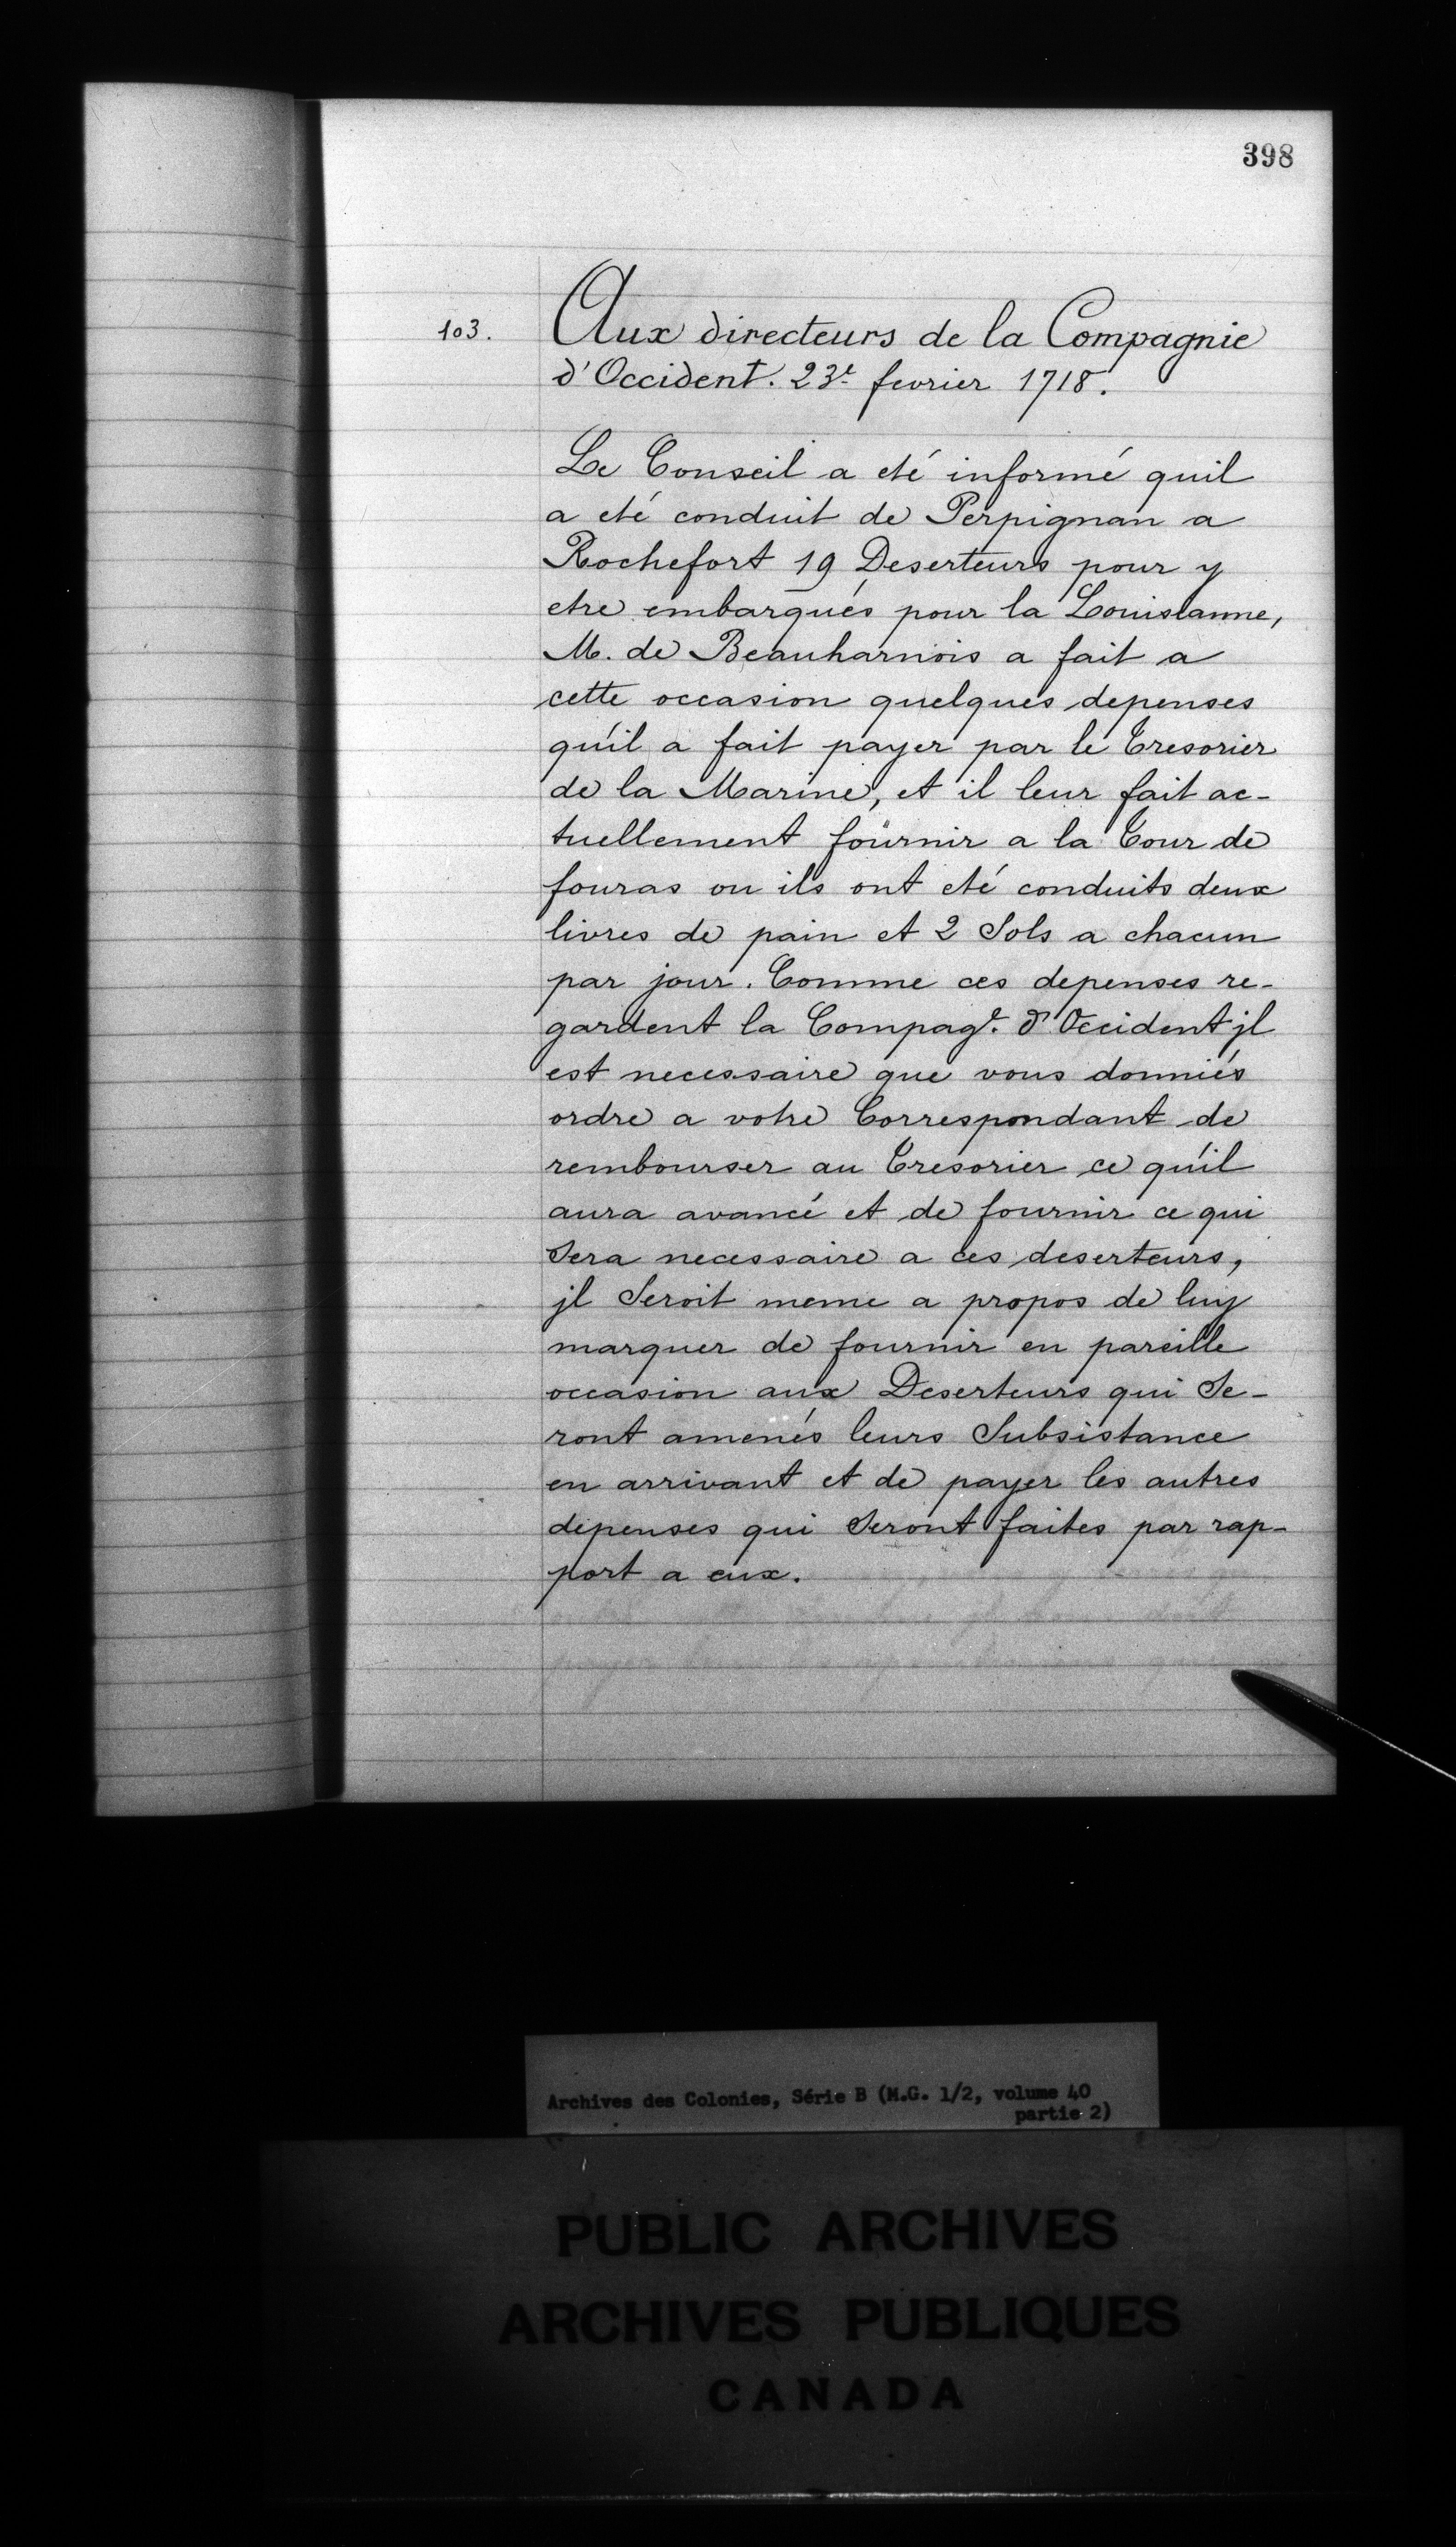 398
103.
Aux directeurs de la Compagnie
d'Occident. 23e. fevrier 1718.
Le Conseil a eté informé quil
a eté conduit de Perpignan a
Rochefort 19 Deserteurs pour y
etre embarqués pour la Louislanne,
M. de Beauharnois a fait a
cette occasion quelques depenses
qu'il a fait payer par le Tresorier
de la Marine, et il leur fait ac-
tuellement fournir a la Tour de
fouras ou ils ont eté conduits deux
livres de pain et 2 Sols a chacun
par jour. Comme ces depenses re-
gardent la Compage. d'Occident jl
est necessaire que vous donniés
ordre a votre Correspondant de
rembourser au Tresorier ce qu'il
aura avancé et de fournir ce qui
Sera necessaire a ces deserteurs,
jl Seroit meme a propos de luy
marquer de fournir en pareille
occasion aux Deserteurs qui Se-
ront amenés leurs Subsistance
en arrivant et de payer les autres
depenses qui Seront faites par rap-
port a eux.
Archives des Colonies, Série B (M.G. 1/2, volume 40
partie 2)
PUBLIC ARCHIVES
ARCHIVES PUBLIQUES
CANADA